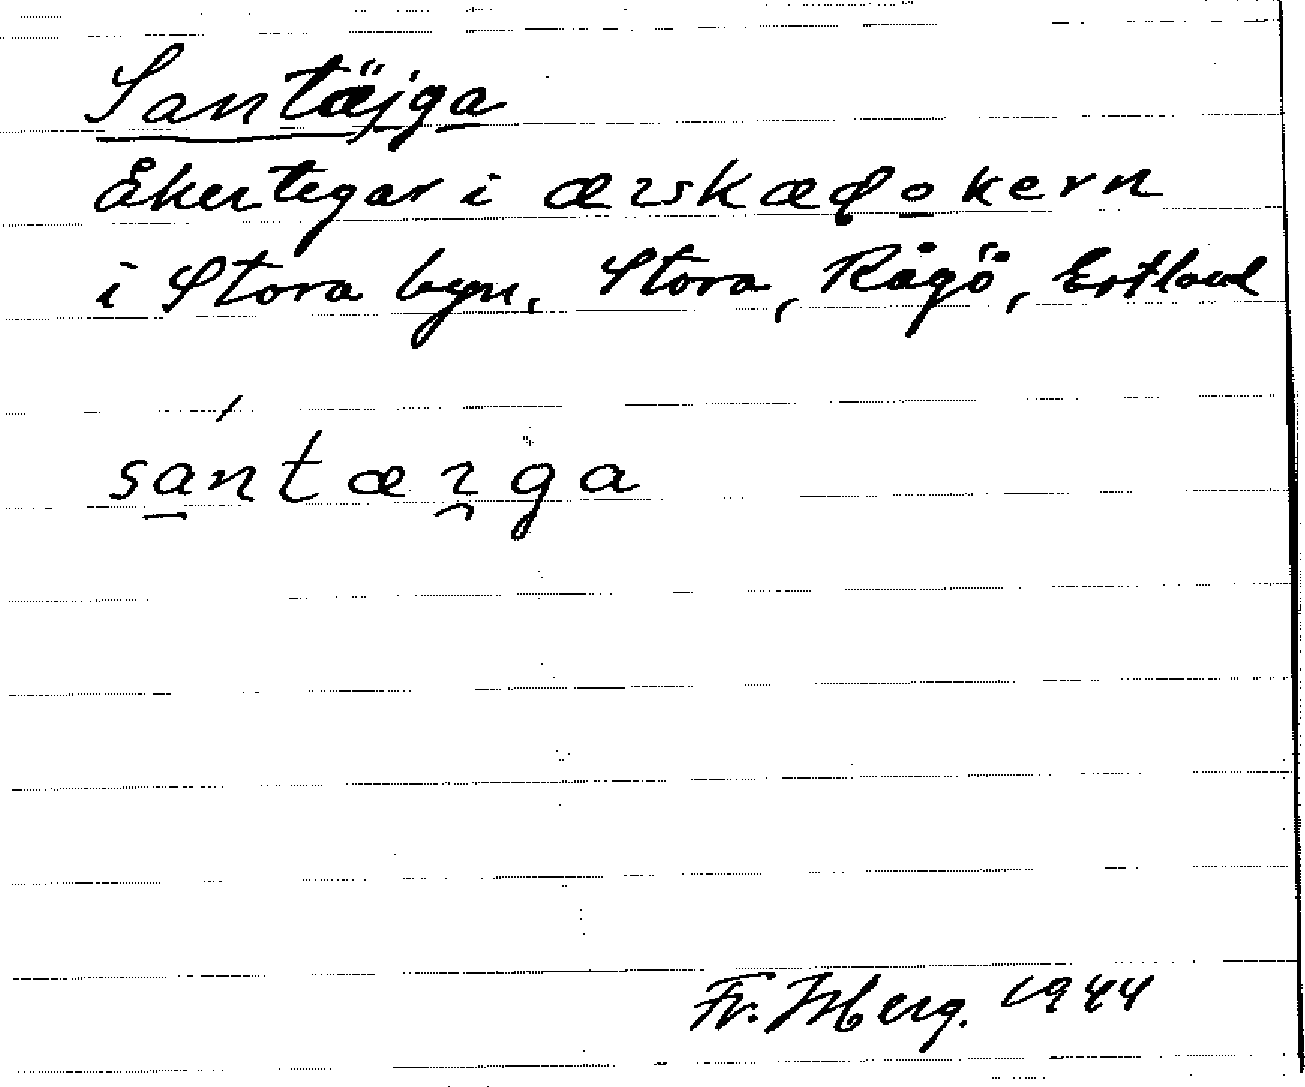 Santäjga
Åkertegar i æıskæđo̲kern
i Stora byn, Stora, Rågö, Estland
sa̲ntæı̯ga
Fr. Isberg. 1944